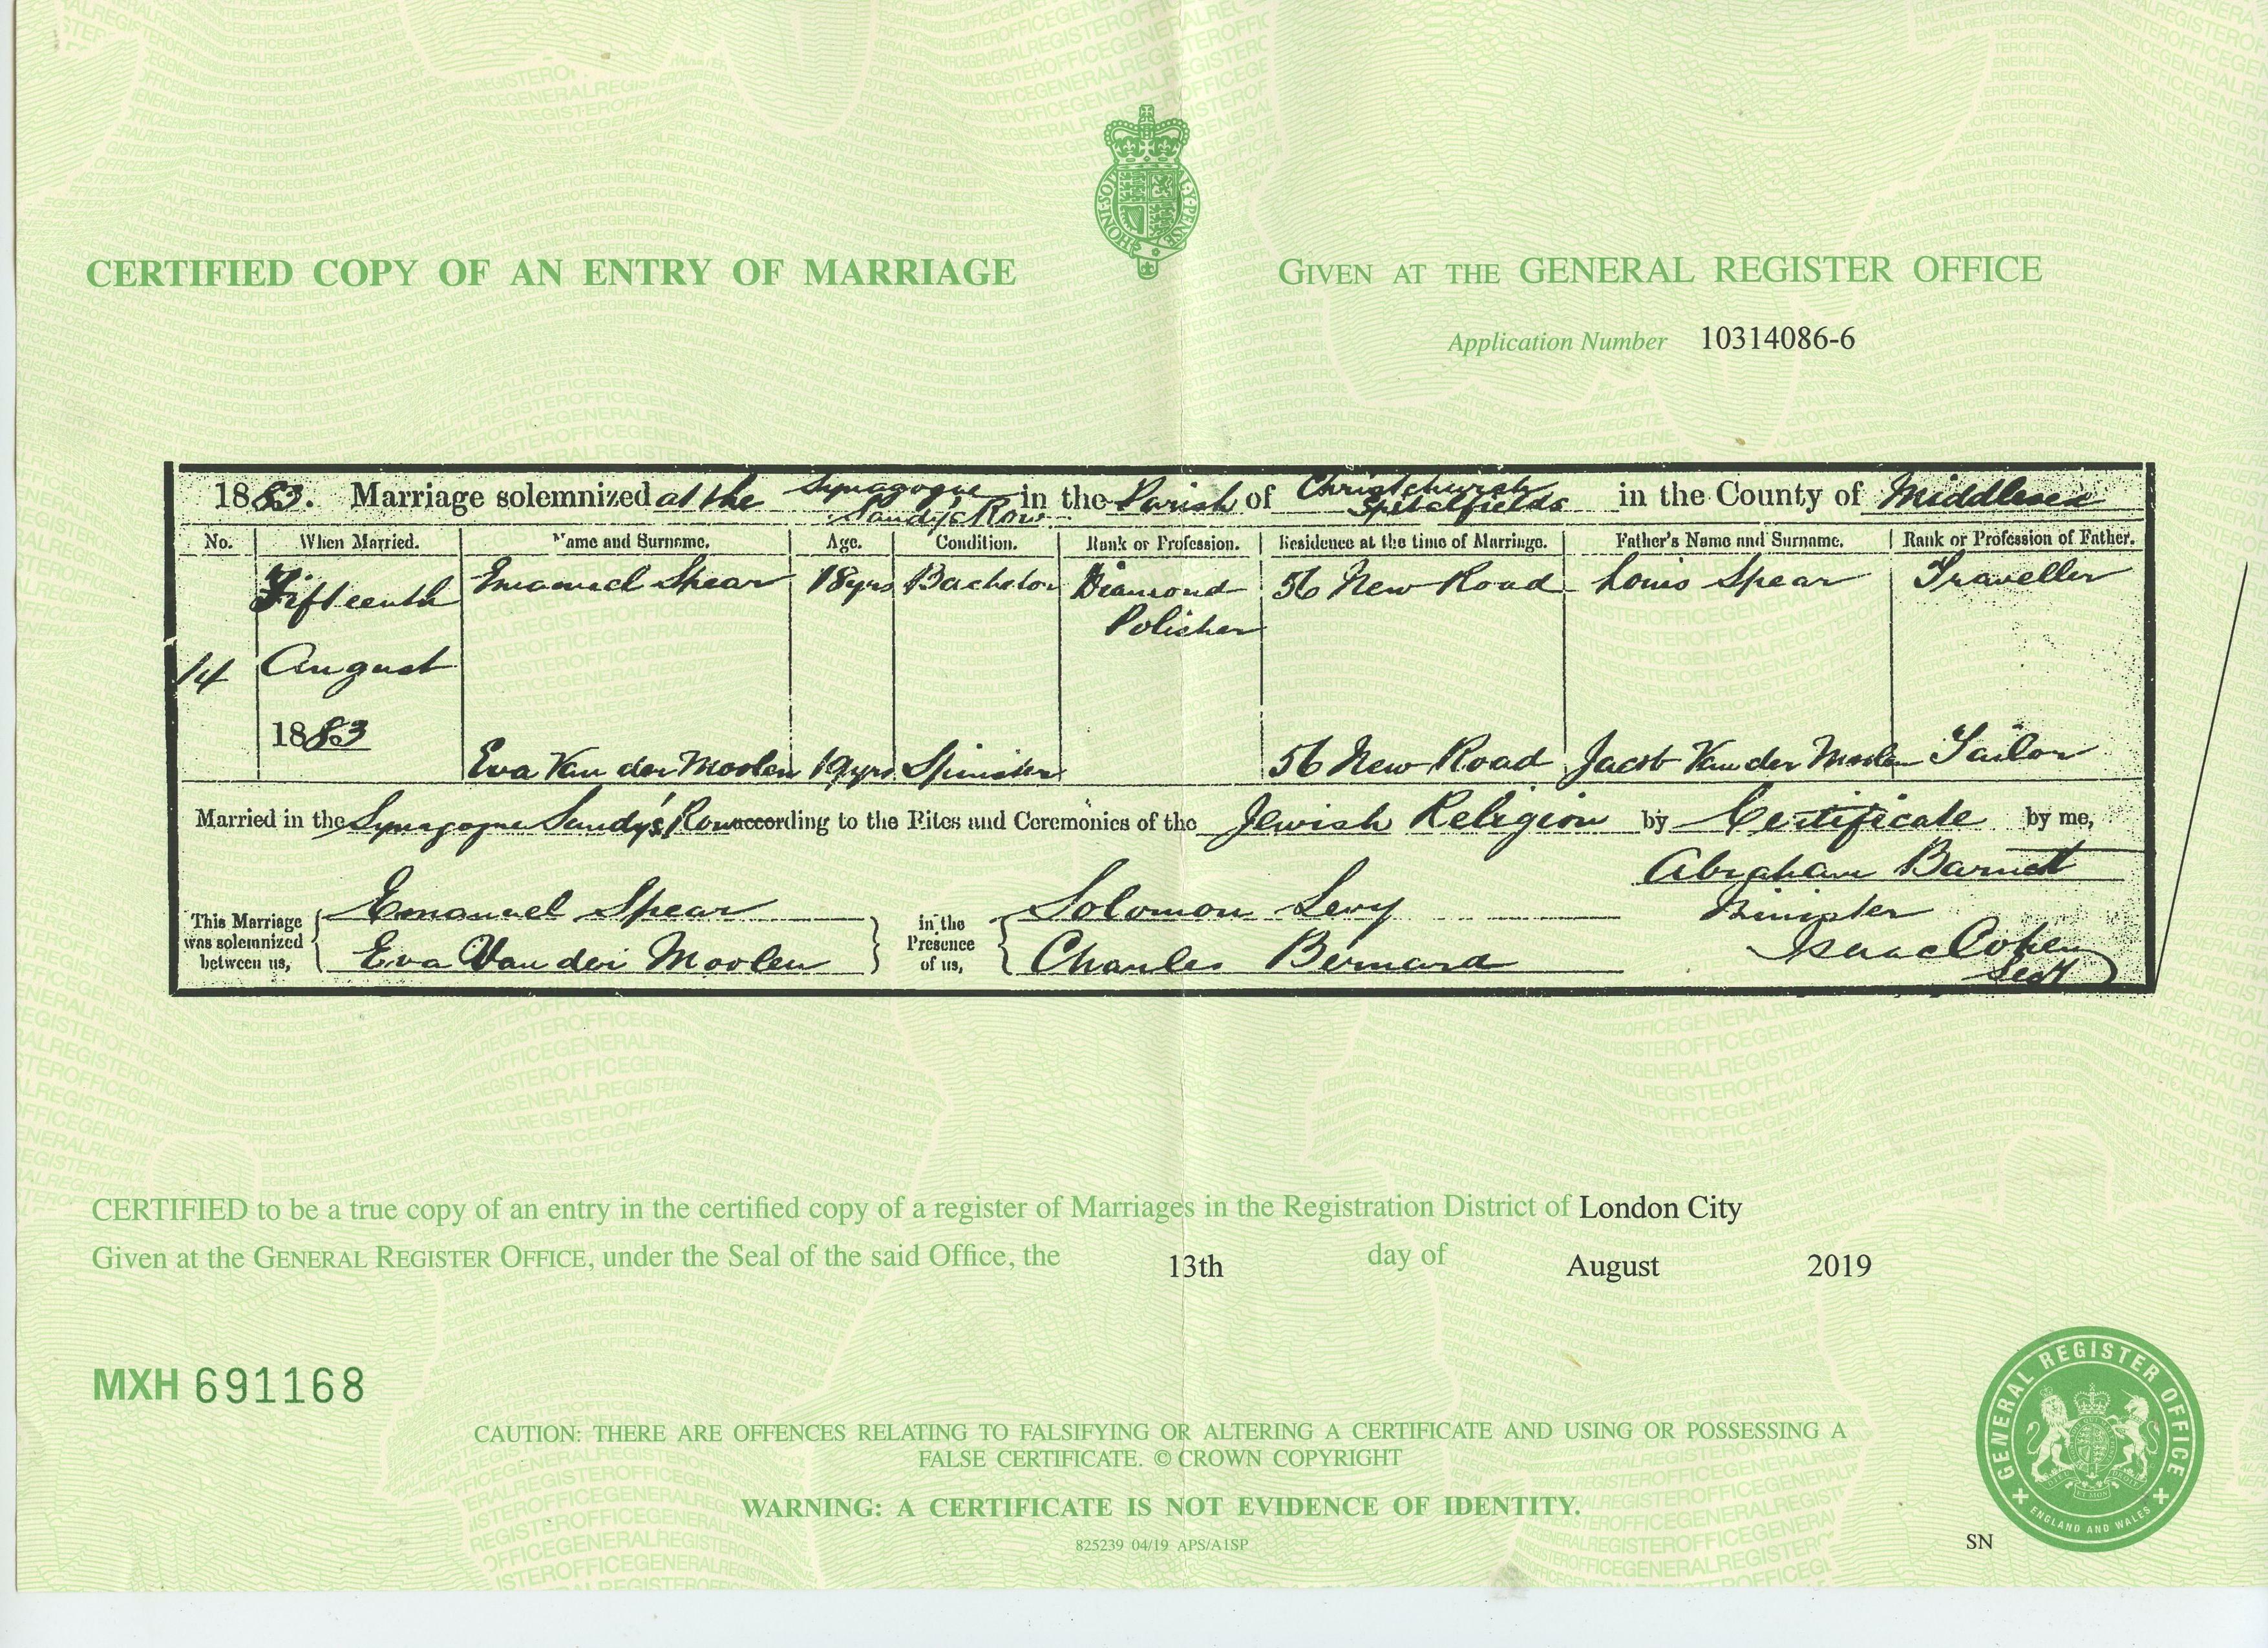 HONI·SOIT ·Y·PENSE
CERTIFIED COPY OF AN ENTRY OF MARRIAGE
GIVEN AT THE GENERAL REGISTER OFFICE
Application Number 10314086-6
1883. Marriage solemnized at the Synagogue Sandy's Row in the Parish of Christchurch Spitalfields in the County of Middlesex
No. When Married. Name and Surname. Age. Condition. Rank or Profession. Residence at the time of Marriage. Father's Name and Surname. Rank or Profession of Father.
14 Fifteenth August 1883
Emanuel Spear 18 yrs Bachelor Diamond Polisher 56 New Road Louis Spear Traveller
Eva Van der Moolen 19 yrs Spinster 56 New Road Jacob Van der Moolen Tailor
Married in the Synagogue Sandy's Row according to the Rites and Ceremonies of the Jewish Religion by Certificate by me,
Abraham Barnett
Minister
This Marriage was solemnized between us, Emanuel Spear Eva Van der Moolen
in the Presence of us, Solomon Levy Charles Bernard
Isaac Cohen
Secy
CERTIFIED to be a true copy of an entry in the certified copy of a register of Marriages in the Registration District of London City
Given at the GENERAL REGISTER OFFICE, under the Seal of the said Office, the 13th day of August 2019
MXH 691168
CAUTION: THERE ARE OFFENCES RELATING TO FALSIFYING OR ALTERING A CERTIFICATE AND USING OR POSSESSING A
FALSE CERTIFICATE. © CROWN COPYRIGHT
WARNING: A CERTIFICATE IS NOT EVIDENCE OF IDENTITY.
825239 04/19 APS/A1SP
SN
GENERAL REGISTER OFFICE
ENGLAND AND WALES